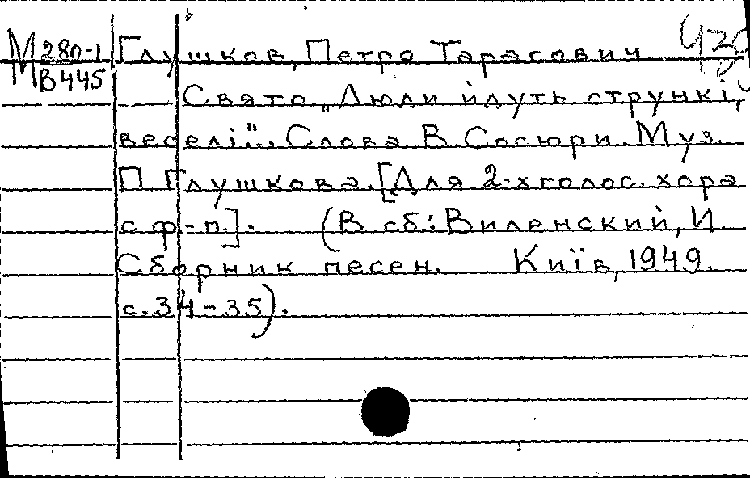 М 280-1 Глушков, Петро Тарасович
В 445
Свято „Люди йдуть стрункі,
веселі". Слова В Сосюри. Муз.
П Глушкова. [Для 2-х голос. хора
с ф-п]. (В сб: Виленский, И.
Сборник песен. Київ, 1949
с. 34-35).